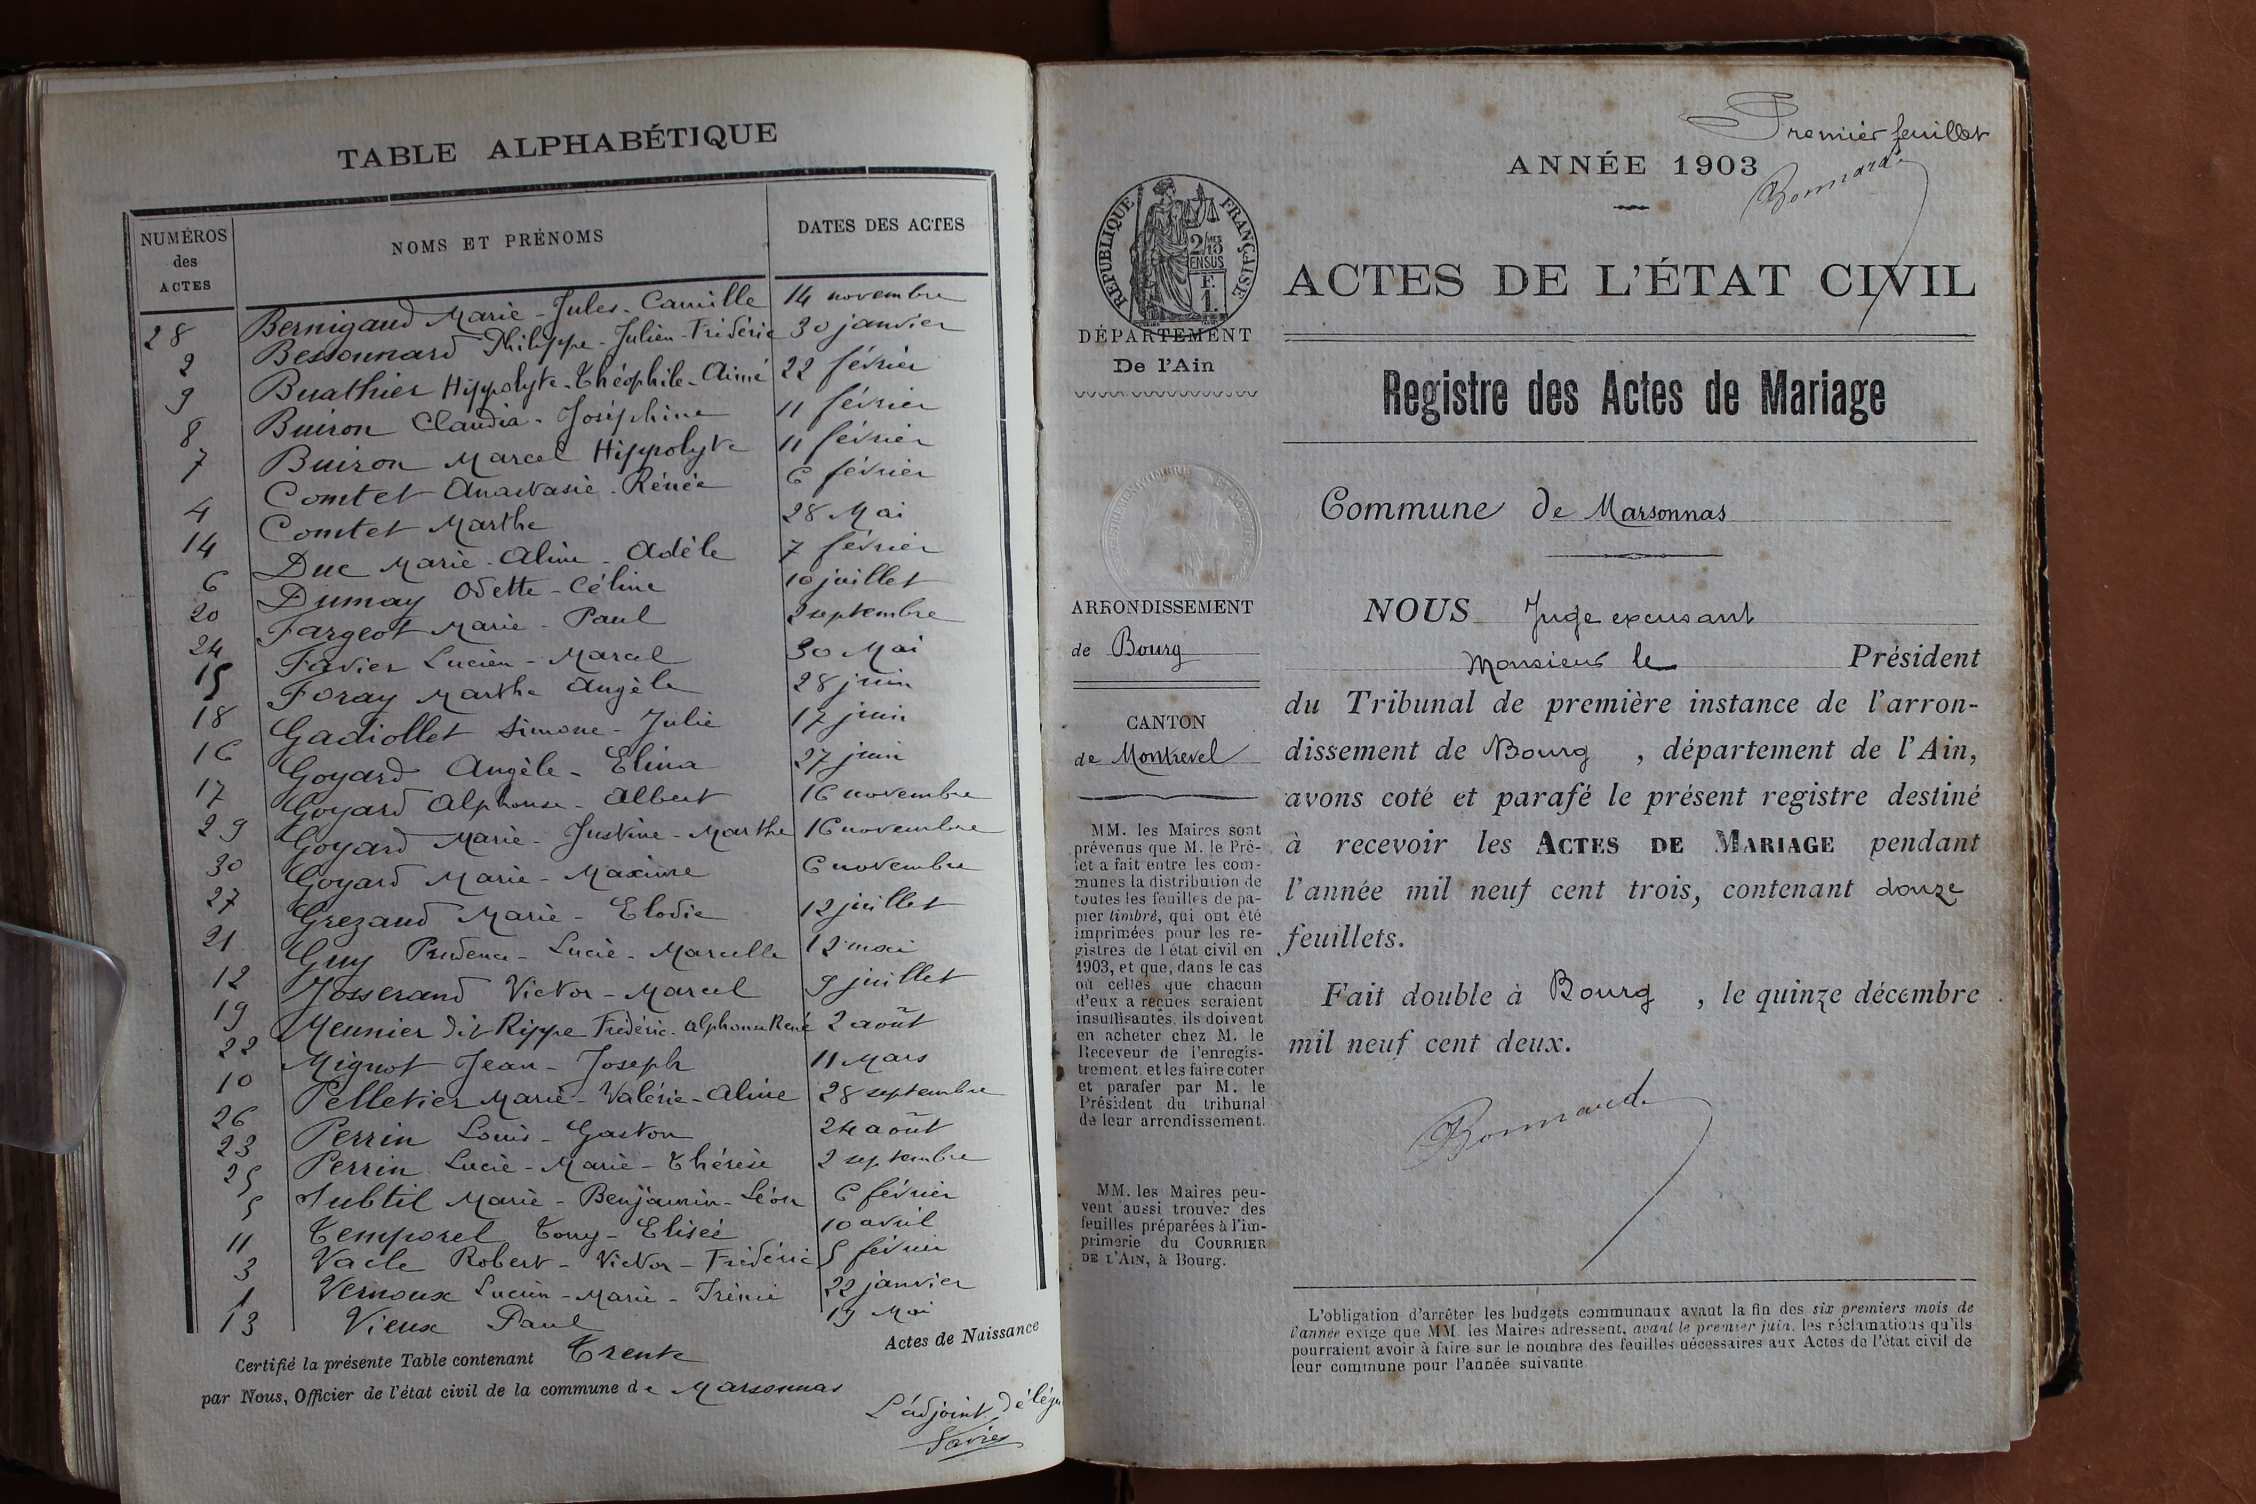 TABLE ALPHABÉTIQUE
NUMÉROS des ACTES NOMS ET PRÉNOMS DATES DES ACTES
28 Bernigaud Marie-Jules-Camille 14 novembre
2 Bessonnard Philippe-Julien-Frédéric 30 janvier
9 Buathier Hippolyte-Théophile-Aimé 22 février
8 Buiron Claudia-Joséphine 11 février
7 Buiron Marcel Hippolyte 11 février
4 Comtet Anastasie-Rénée 6 février
14 Comtet Marthe 28 Mai
6 Duc Marie-Aline-Adèle 7 février
20 Dumay Odette-Céline 10 juillet
24 Fargeot Marie-Paul 2 septembre
15 Favier Lucien-Marcel 30 Mai
18 Foray Marthe Angèle 28 juin
16 Gadiollet Simone-Julie 17 juin
17 Goyard Angèle-Elina 27 juin
29 Goyard Alphonse-Albert 16 novembre
30 Goyard Marie-Justine-Marthe 16 novembre
27 Goyard Marie-Maxime 6 novembre
21 Grezaud Marie-Elodie 12 juillet
12 Guy Prudence-Lucie-Marcelle 12 mai
19 Josserand Victor-Marcel 9 juillet
22 Meunier dit Rippe Frédéric-Alphonse René 2 août
10 Mignot Jean-Joseph 11 Mars
26 Pelletier Marie-Valérie-Aline 28 septembre
23 Perrin Louis-Gaston 24 août
25 Perrin Lucie-Marie-Thérèse 2 septembre
5 Subtil Marie-Benjamin-Léon 6 février
11 Temporel Tony-Elisée 10 avril
3 Vacle Robert-Victor-Frédéric 5 février
1 Vernoux Lucien-Marie-Irénée 22 janvier
13 Vieux Paul 19 Mai
Certifié la présente Table contenant Trente Actes de Naissance
par Nous, Officier de l'état civil de la commune de Marsonnas
L'adjoint délégu
Favier
Premier feuillet
ANNÉE 1903
Bonnard
RÉPUBLIQUE FRANÇAISE
2/10 EN SUS
F. 1.
ACTES DE L'ÉTAT CIVIL
DÉPARTEMENT
De l'Ain
Registre des Actes de Mariage
Commune de Marsonnas
ARRONDISSEMENT
de Bourg
CANTON
de Montrevel
MM. les Maires sont
prévenus que M. le Pré-
fet a fait entre les com-
munes la distribution de
toutes les feuilles de pa-
pier timbré, qui ont été
imprimées pour les re-
gistres de l'état civil en
1903, et que, dans le cas
où celles que chacun
d'eux a reçues seraient
insuffisantes, ils doivent
en acheter chez M. le
Receveur de l'enregis-
trement et les faire coter
et parafer par M. le
Président du tribunal
de leur arrondissement.
MM. les Maires peu-
vent aussi trouver des
feuilles préparées à l'im-
primerie du COURRIER
DE L'AIN, à Bourg.
NOUS Juge excusant
Monsieur le Président
du Tribunal de première instance de l'arron-
dissement de Bourg , département de l'Ain,
avons coté et parafé le présent registre destiné
à recevoir les ACTES DE MARIAGE pendant
l'année mil neuf cent trois, contenant douze
feuillets.
Fait double à Bourg , le quinze décembre
mil neuf cent deux.
Bonnard
L'obligation d'arrêter les budgets communaux avant la fin des six premiers mois de
l'année exige que MM. les Maires adressent, avant le premier juin, les réclamations qu'ils
pourraient avoir à faire sur le nombre des feuilles nécessaires aux Actes de l'état civil de
leur commune pour l'année suivante